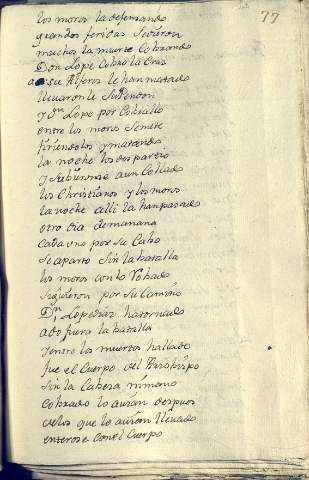 77
los moros la defensando
grandes feridas se dàron
muchos la muerte Cobrando
Don Lope Cobro la Cras
a su Alferes le han matado
lleuaron le su Pendon
y Dn Lope por Cobrallo
entre los moros se mete
firiendolos y matando
la noche los departio
y subieronse a un Collado
los Christianos y los moros
la noche alli la han pasado
otro dia de manana
Cada uno por su Cabo
se aparto sin la batalla
los moros con lo Robado
siguieron por su Camino
Dn Lope diaz ha tornado
a do fuera la batalla
y entre los muertos hallado
fue el Cuerpo del Arzobispo
sin la Cabesa ni mano
Cobrado lo auian despues
de los que lo auian lleuado
enterose con el Cuerpo